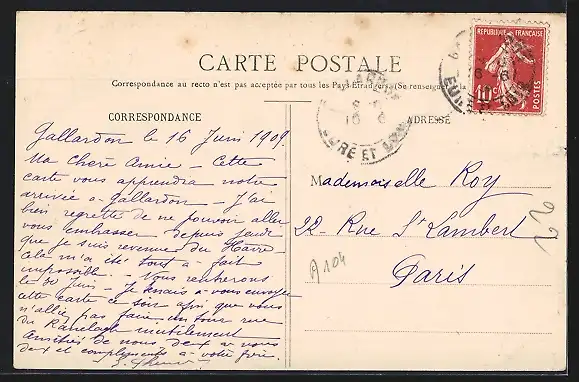 CARTE POSTALE
Correspondance au recto n'est pas acceptée par tous les Pays Étrangers. (Se renseigner à la
CORRESPONDANCE
ADRESSE
RÉPUBLIQUE FRANÇAISE
10c
POSTES
EURE ET LOIR
Gallardon le 16 Juin 1909.
Ma Chère Amie – Cette
carte vous apprendra notre
arrivée à Gallardon – J'ai
bien regretté de ne pouvoir aller
vous embrasser depuis jeudi
que je suis revenue du Havre –
Cela m'a été tout à fait
impossible. – Nous rentrerons
le 30 juin – Je tenais à vous envoyer
cette carte ce soir afin que vous
n'alliez pas faire un tour rue
du Ranelagh inutilement
Amitiés de nous deux à vous
deux et compliments à votre frère.
Mademoiselle Roy
22 – Rue St Lambert
Paris
A 104